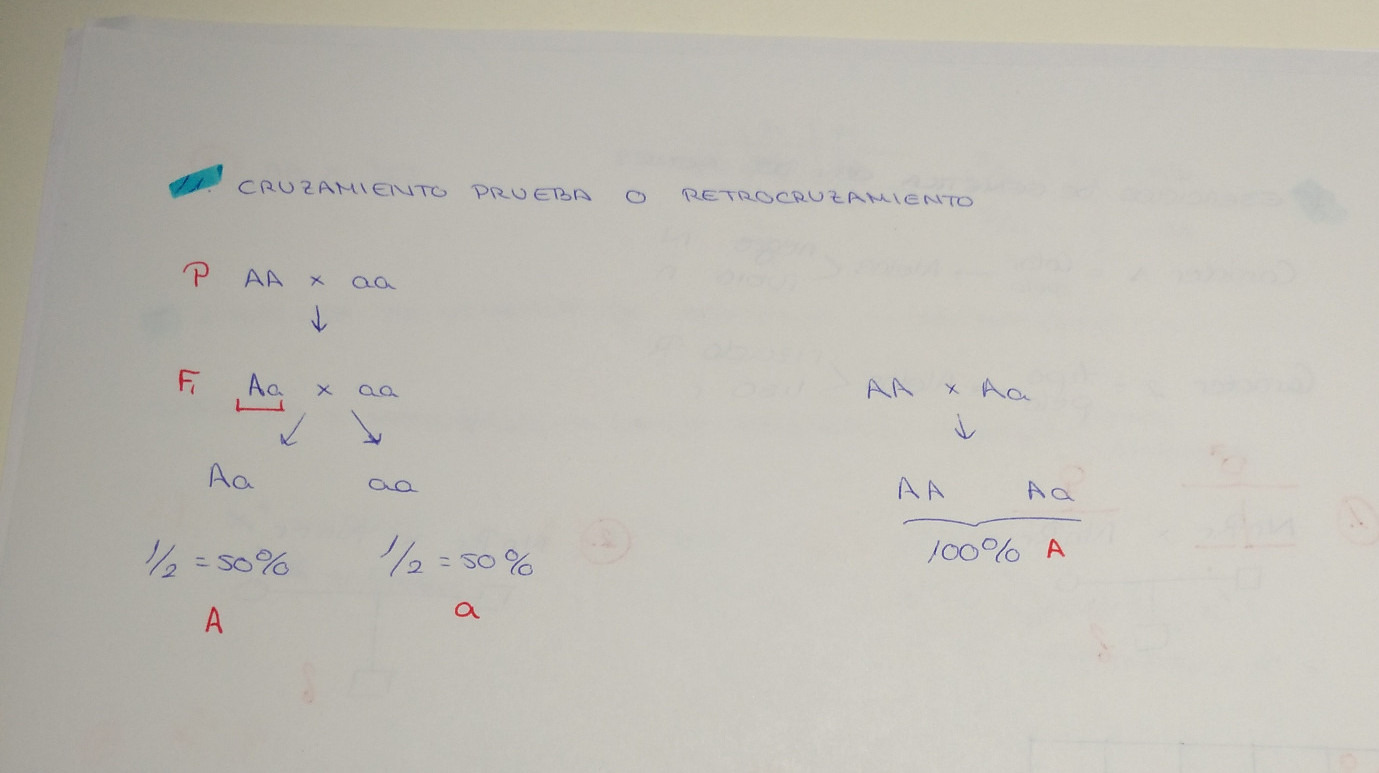 11. CRUZAMIENTO PRUEBA O RETROCRUZAMIENTO
P AA x aa
↓
F₁ Aa x aa
Aa aa
1/2 = 50% 1/2 = 50%
A a
AA x Aa
↓
AA Aa
100% A